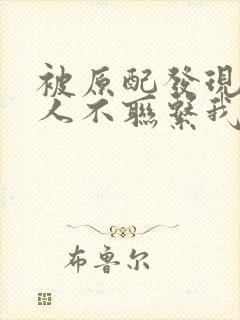 被原配發現
人不聯繫我
布鲁尔